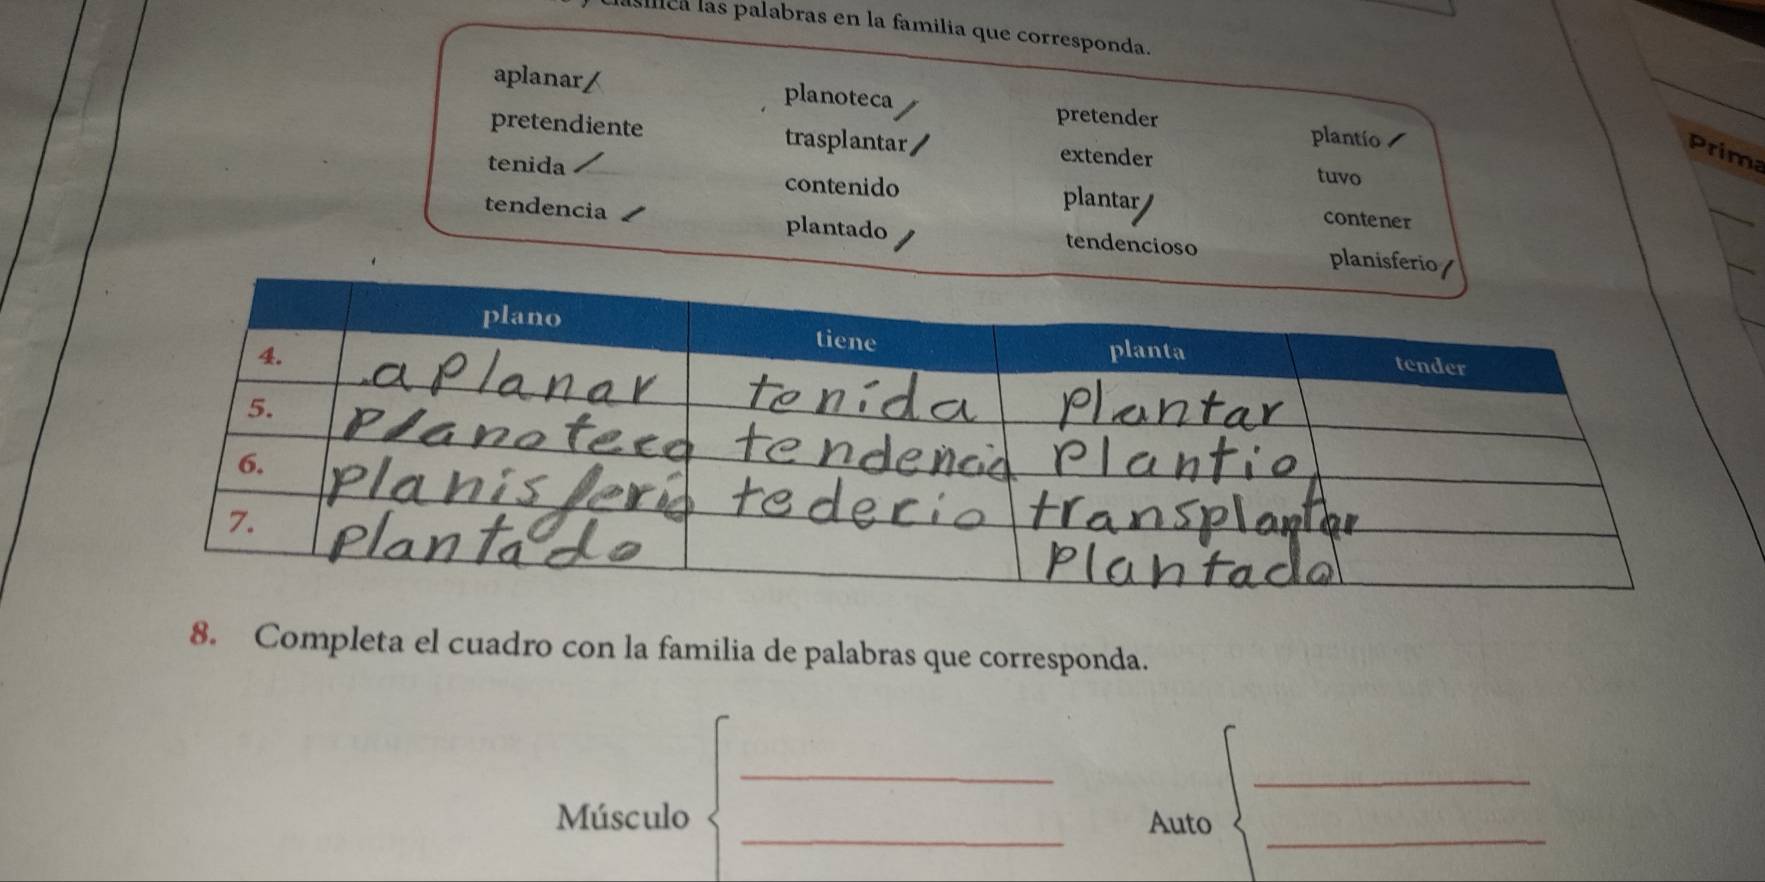 las palabras en la familia que corresponda.
aplanar planoteca pretender plantío
pretendiente trasplantar extender tuvo
tenida contenido plantar contener
tendencia plantado tendencioso planisferio
Prima
plano tiene planta tender
4. aplanar tenida plantar
5. planoteca tendencia plantio
6. planisferio tedecio transplantar
7. plantado plantado
8. Completa el cuadro con la familia de palabras que corresponda.
Músculo Auto